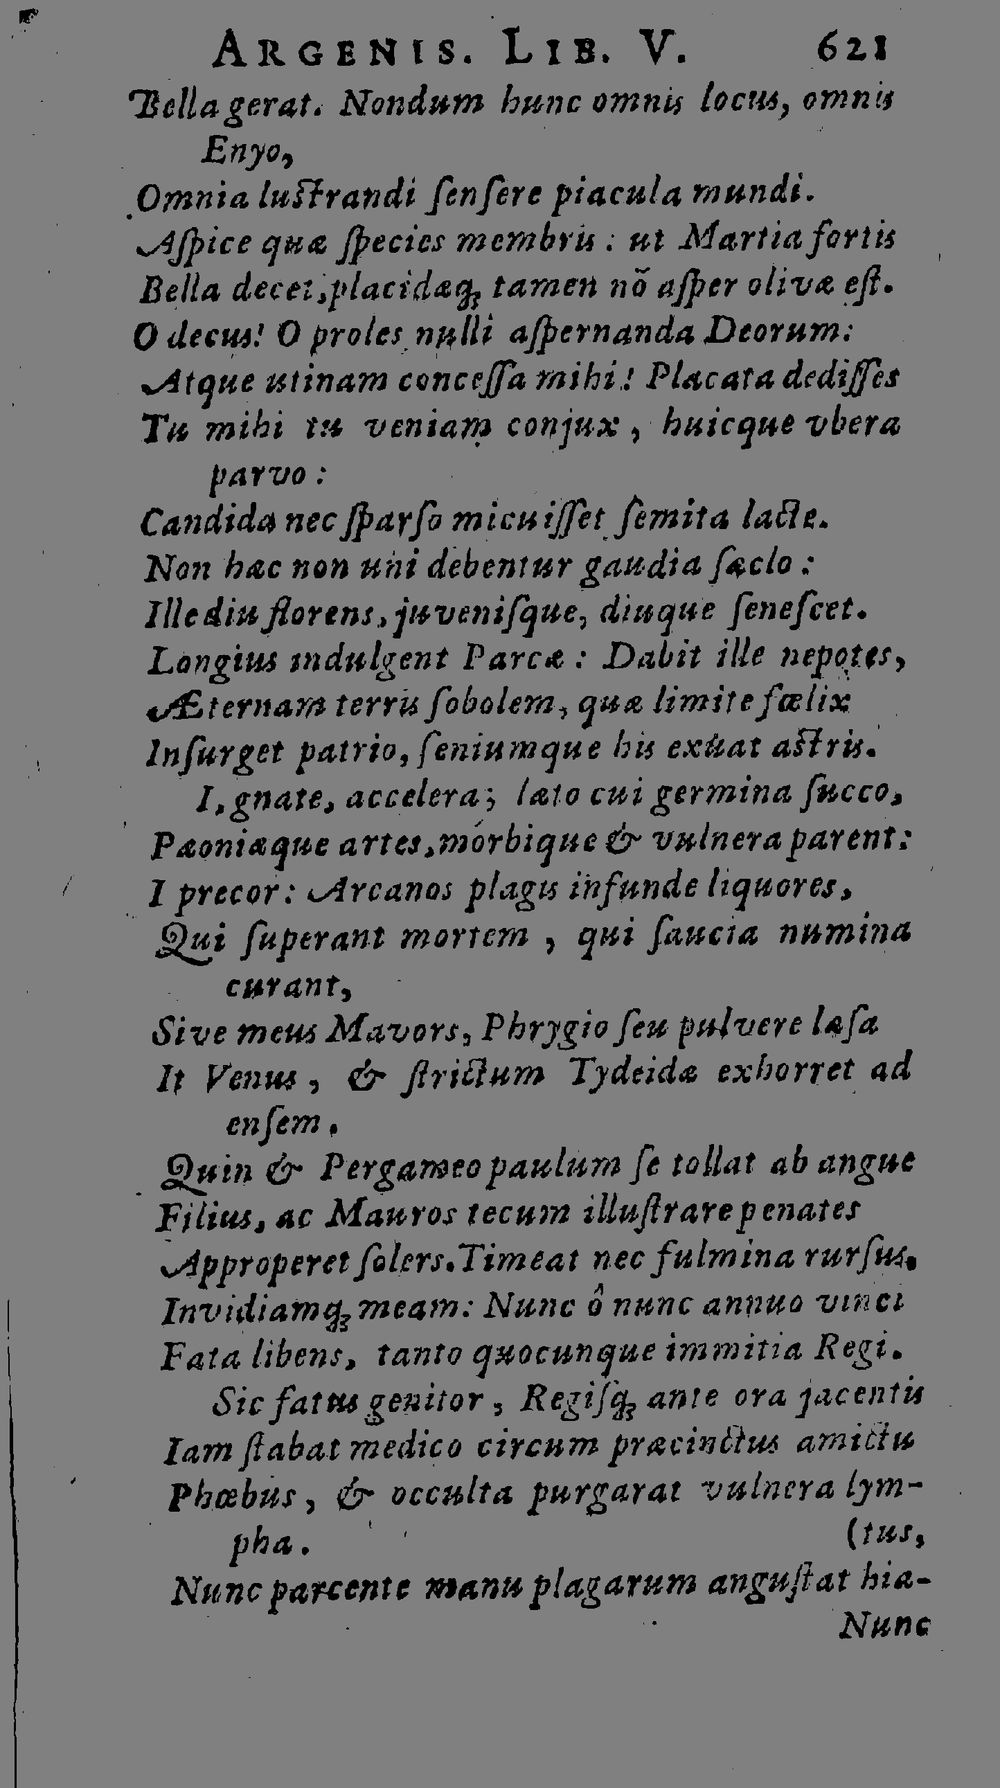 ARGENIS. LIB. V. 621
Bella gerat. Nondum hunc omnis locus, omnis
Enyo,
Omnia lustrandi sensere piacula mundi.
Aspice quæ species membris: ut Martia fortis
Bella decet, placidæq; tamen nõ asper olivæ est.
O decus! O proles nulli aspernanda Deorum:
Atque utinam concessa mihi! Placata dedisses
Tu mihi tu veniam conjux, huicque vbera
parvo:
Candida nec sparso micuisset semita lacte.
Non hæc non uni debentur gaudia sæclo:
Ille diu florens, juvenisque, diuque senescet.
Longius indulgent Parcæ: Dabit ille nepotes,
Æternam terris sobolem, quæ limite fœlix
Insurget patrio, seniumque his exuat astris.
I, gnate, accelera; læto cui germina succo,
Pæoniæque artes, morbique & vulnera parent:
I precor: Arcanos plagis infunde liquores,
Qui superant mortem, qui saucia numina
curant,
Sive meus Mavors, Phrygio seu pulvere læsa
It Venus, & strictum Tydeidæ exhorret ad
ensem.
Quin & Pergameo paulum se tollat ab angue
Filius, ac Mauros tecum illustrare penates
Approperet solers. Timeat nec fulmina rursus.
Invidiamq; meam: Nunc ô nunc annuo vinci
Fata libens, tanto quocunque immitia Regi.
Sic fatus genitor, Regisq; ante ora jacentis
Iam stabat medico circum præcinctus amictu
Phœbus, & occulta purgarat vulnera lym-
pha. (tus,
Nunc parcente manu plagarum angustat hia-
Nunc